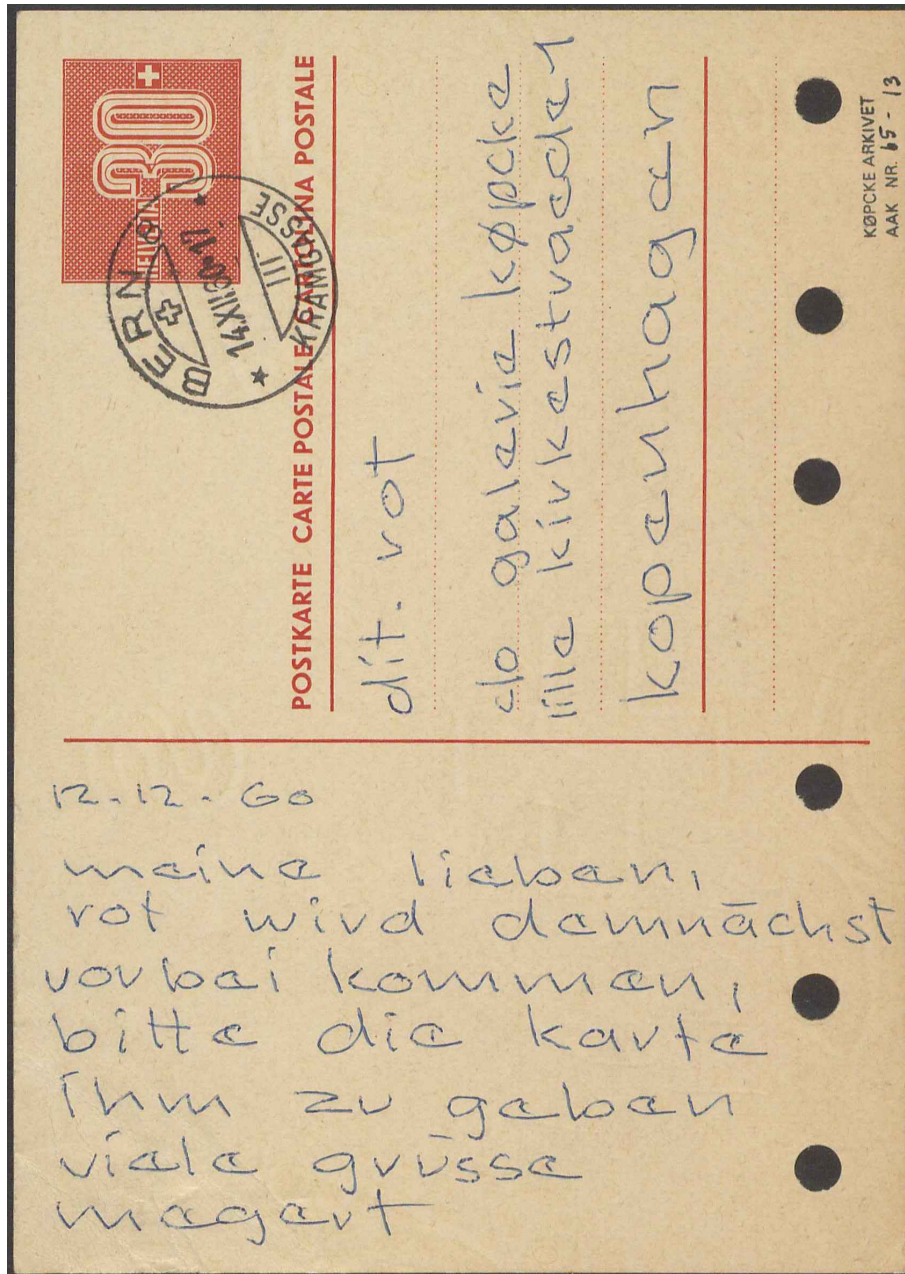 HELVETIA
30+
BERN 8
14.XII.60-17
III
KRAMGASSE
POSTKARTE CARTE POSTALE CARTOLINA POSTALE
dit. rot
c/o galerie køpcke
lille kirkestræde 1
kopenhagen
KØPCKE ARKIVET
AAK NR. 65-13
12-12-60
meine lieben,
rot wird demnächst
vorbei kommen,
bitte die karte
ihm zu geben
viele grüsse
megert